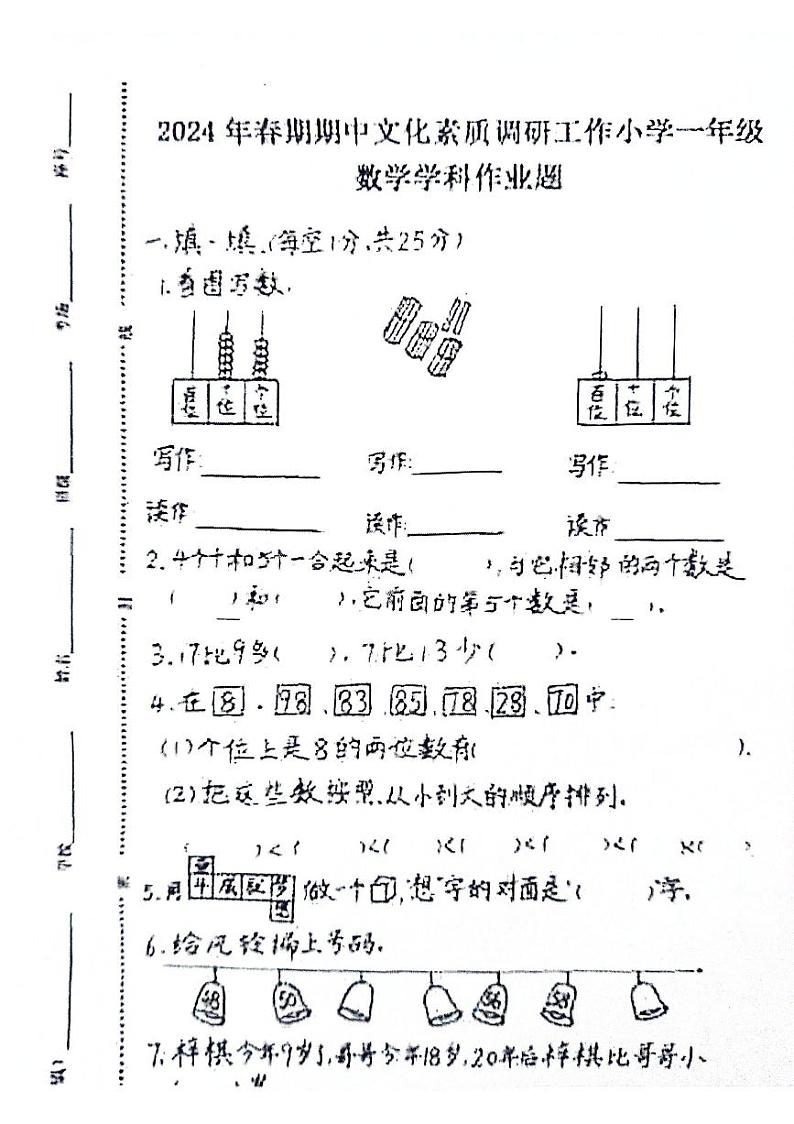 2024年春期期中文化素质调研工作小学一年级
数学学科作业题
一.填一填.(每空1分,共25分)
1.看图写数.
百位 十位 个位
百位 十位 个位
写作: 写作: 写作:
读作 读作: 读作
2.4个十和5个一合起来是( ),与它相邻的两个数是
( )和( ),它前面的第5个数是( ).
3.17比9多( ),7比13少( ).
4.在 8 . 98 、 83 、 85 、 78 、 28 、 70 中:
(1)个位上是8的两位数有( ).
(2)把这些数按照从小到大的顺序排列.
( )<( )<( )<( )<( )<( )<( )
5.用 奋 斗 成 就 梦 想 做一个 ,"想"字的对面是( )字.
6.给风铃编上号码.
48 50 56 58
7.梓棋今年9岁了,哥哥今年18岁,20年后梓棋比哥哥小
( )岁
座号
考场
班级
姓名
学校
线
封